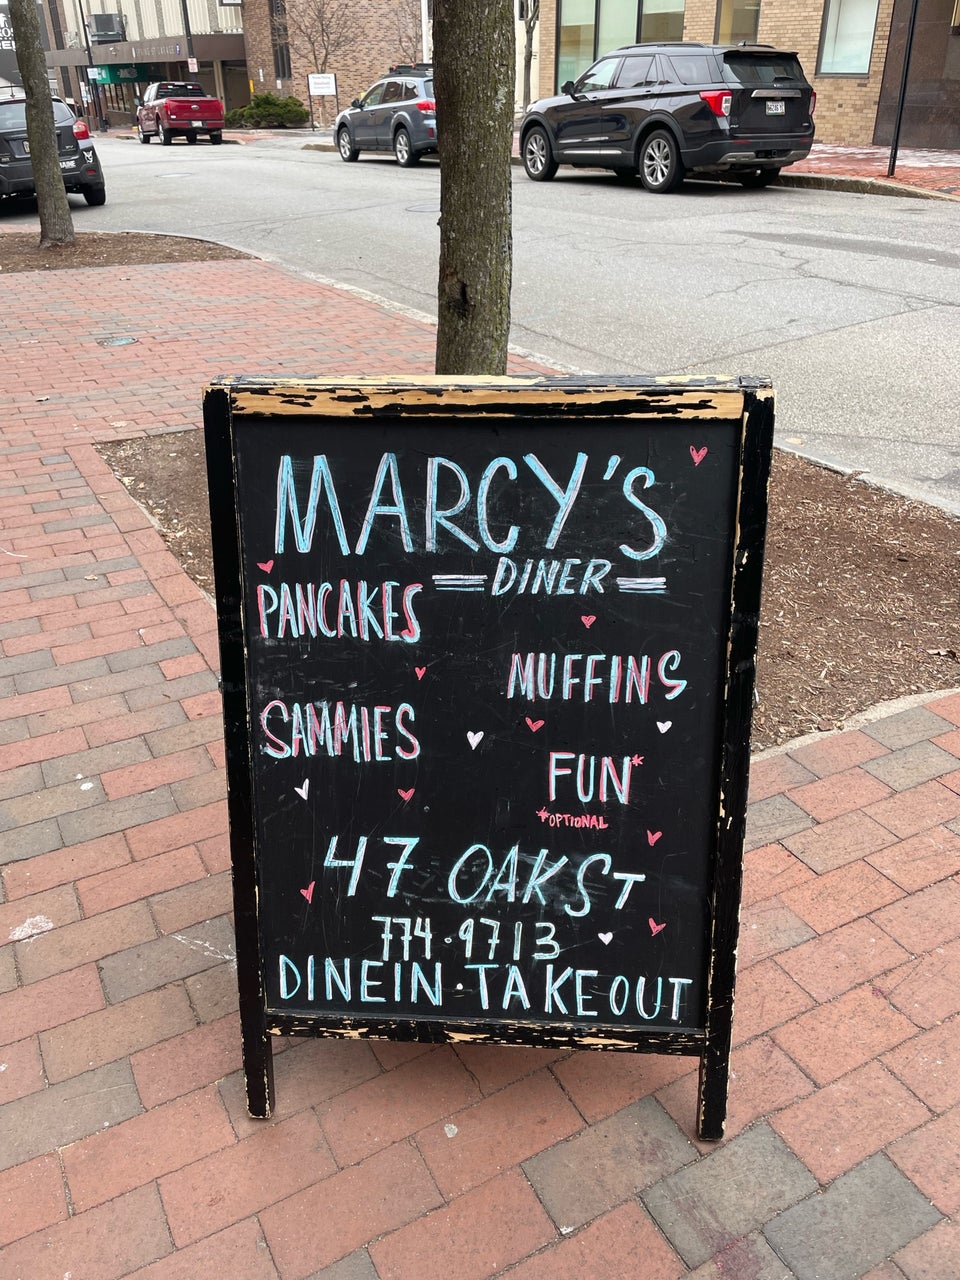 MARCY'S
DINER
PANCAKES
MUFFINS
SAMMIES
FUN*
*OPTIONAL
47 OAK ST
774·9713
DINE IN · TAKE OUT